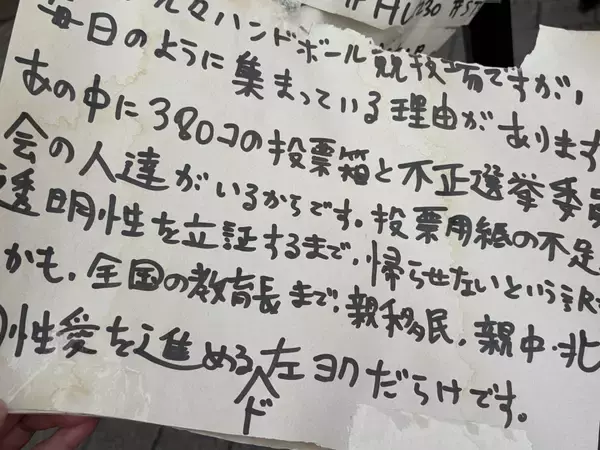 #HU030 #ST
元々ハンドボール競技場ですが、
毎日のように集まっている理由があります
あの中に380コの投票箱と不正選挙委員
会の人達がいるからです。投票用紙の不足
透明性を立証するまで、帰らせないという訳
かも、全国の教育長まで、親移民、親中・北
性愛を進める左ヨクだらけです。
ド